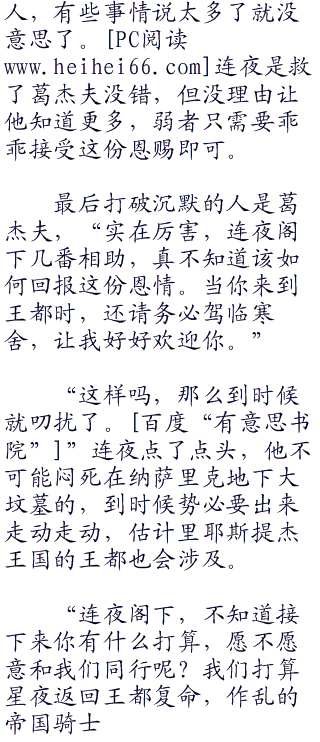 人，有些事情说太多了就没
意思了。[PC阅读
www.heihei66.com]连夜是救
了葛杰夫没错，但没理由让
他知道更多，弱者只需要乖
乖接受这份恩赐即可。
最后打破沉默的人是葛
杰夫，“实在厉害，连夜阁
下几番相助，真不知道该如
何回报这份恩情。当你来到
王都时，还请务必驾临寒
舍，让我好好欢迎你。”
“这样吗，那么到时候
就叨扰了。[百度“有意思书
院”]”连夜点了点头，他不
可能闷死在纳萨里克地下大
坟墓的，到时候势必要出来
走动走动，估计里耶斯提杰
王国的王都也会涉及。
“连夜阁下，不知道接
下来你有什么打算，愿不愿
意和我们同行呢？我们打算
星夜返回王都复命，作乱的
帝国骑士